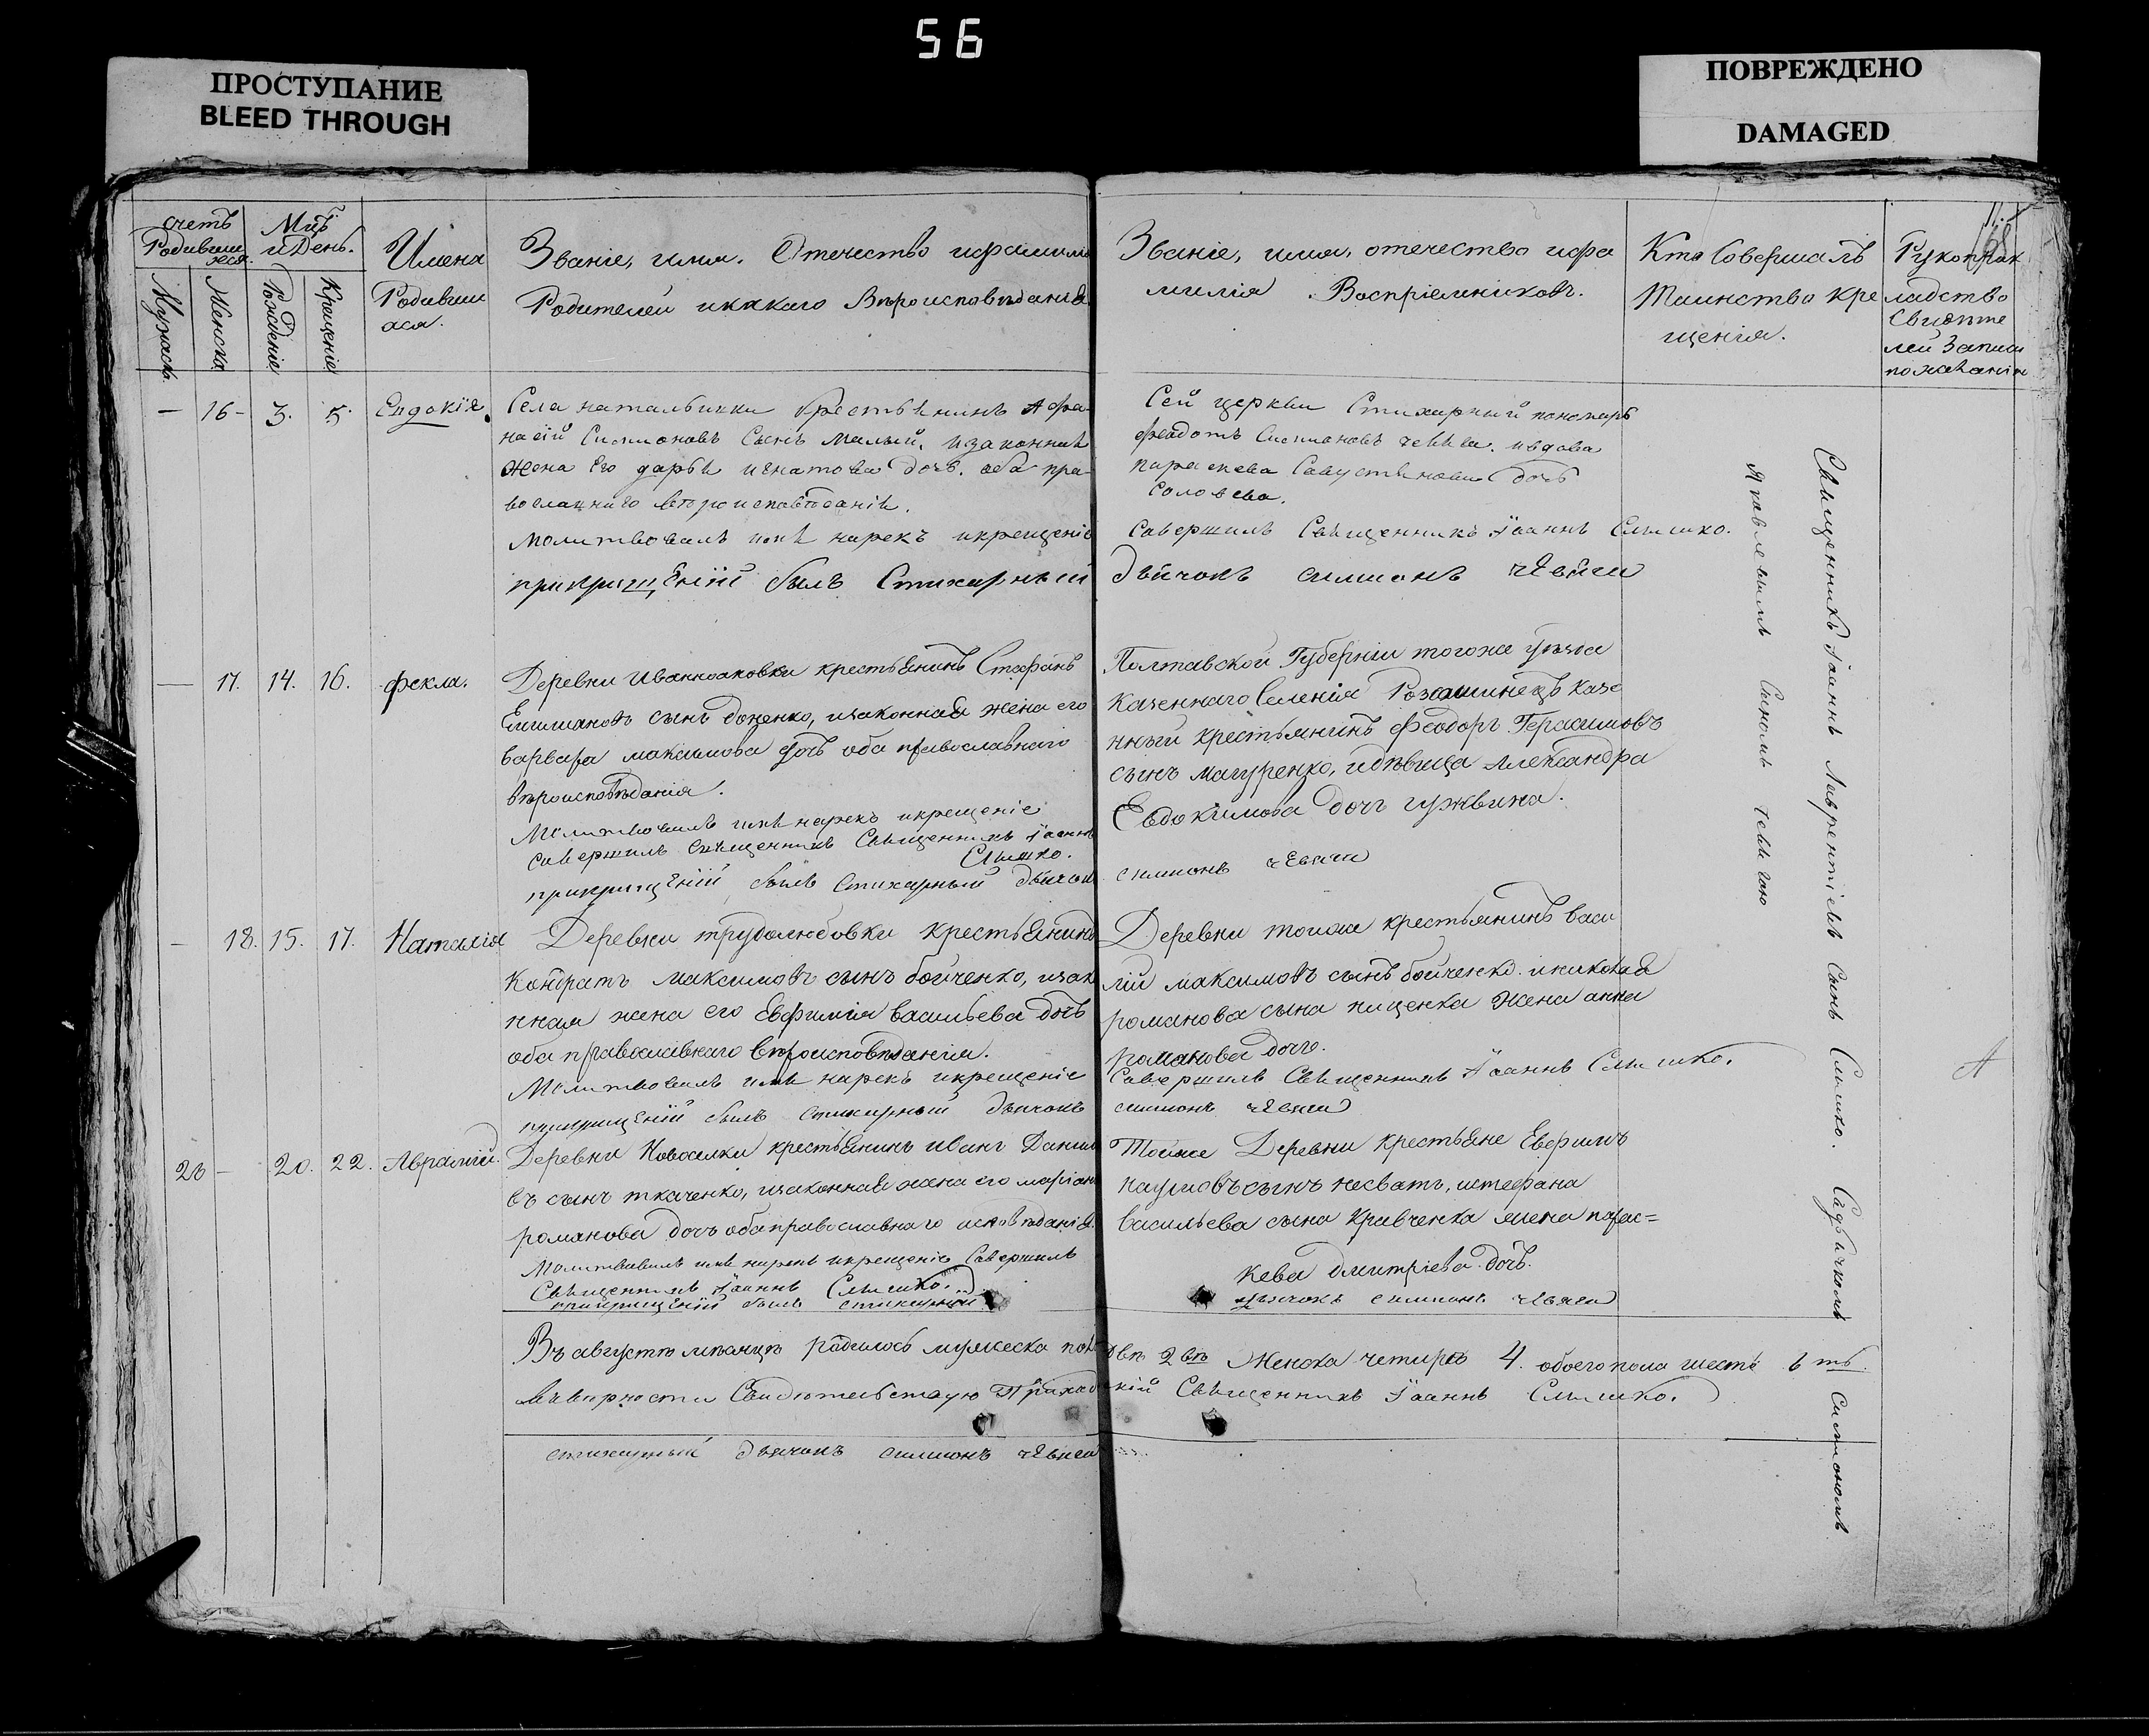 56
ПРОСТУПАНИЕ
BLEED THROUGH
ПОВРЕЖДЕНО
DAMAGED
счетъ
Родивши
хся.
Мцъ
и День.
Мужеска
Женска
Рожденіе
Крещеніе
Имена
Родивши
хся.
Званіе, имя. Отечество ифамилія
Родителей икакаго Вѣроисповѣданія
Званіе, имя, отечество ифа
милія Воспріемниковъ.
Кто Совершалъ
Таинство кре
щенія.
Рукоприк
ладство
Свидѣте
лей Записи
пожеланію
— 16 — 3. 5. Евдокія.
Села натальинки Крестьянинъ Афа-
насій Симионовъ Сынъ малый, изаконная
жена Его дарья игнатова дочь. оба пра-
вославнаго вѣроисповѣданія.
Молитвовалъ имя нарекъ икрещеніе
прикрищеніи былъ Стихарный
Сей церкви Стихарный пономарь
феодотъ Симионовъ ивдова
параскева дочь
Соловьева.
Совершилъ Священникъ Іоаннъ Слышко.
дьячокъ симионъ
— 17. 14. 16. фекла.
Деревни Иванисаковки крестьянинъ Стефанъ
сынъ доценко, изаконная жена его
варвара максимова дочь оба православнаго
вѣроисповѣданія.
Молитвовалъ имя нарекъ икрещеніе
совершилъ Священникъ Іоаннъ
Слышко.
прикрищеніи былъ Стихарный дьячокъ
Полтавской Губерніи тогоже уѣзда
Казеннаго Селенія казе
нный крестьянинъ Феодоръ Герасимовъ
сынъ мазуренко, идѣвица Александра
Евдокимова дочь гужвина.
симионъ
— 18. 15. 17. Наталія
Деревни трудолюбовки крестьянинъ
Кондратъ максимовъ сынъ бойченко, изако
нная жена его Евфимія васильева дочь
оба православнаго вѣроисповѣданія.
Молитвовалъ имя нарекъ икрещеніе
прикрищеніи былъ стихарный дьячокъ
Деревни тойже крестьянинъ васи
лій максимовъ сынъ бойченко. иниколая
романова сына пищенка жена анна
романова дочь.
Совершилъ Священникъ Іоаннъ Слышко.
симионъ
20 — 20. 22. Аврамій.
Деревни Новоселки крестьянинъ иванъ Данило
въ сынъ ткаченко, изаконная жена его маріана
романова дочь обаправославнаго исповѣданія.
Молитвовалъ имя нарекъ икрещеніе Совершилъ
Священникъ Іоаннъ Слышко.
прикрищеніи былъ стихарный
Тойже Деревни крестьяне Евфимъ
наумовъ сынъ несватъ, истефана
васильева сына кравченка жена парас=
кева дмитріева дочь.
дьячокъ симионъ
Въ августѣ мѣсяцѣ родилось мужеска пола двѣ 2 вѣ Женска четыре 4. обоегопола шесть 6 ть.
Свидѣтельствую Священникъ Іоаннъ Слышко.
стихарный дьячокъ симионъ
Священникъ Іоаннъ Лаврентіевъ Сынъ Слышко. Сдьячкомъ Симиономъ
Сыномъ